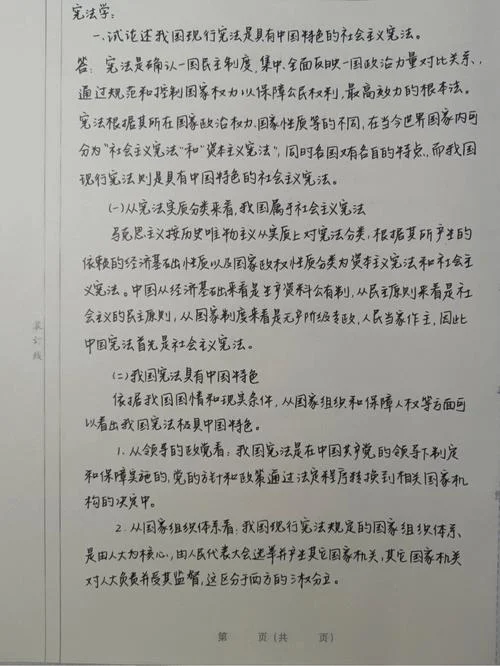 宪法学:
一.试论述我国现行宪法是具有中国特色的社会主义宪法。
答:宪法是确认一国民主制度,集中、全面反映一国政治力量对比关系、
通过规范和控制国家权力以保障公民权利,最高效力的根本法。
宪法根据其所在国家政治权力、国家性质等的不同,在当今世界国家内可
分为"社会主义宪法"和"资本主义宪法",同时各国又有各自的特点,而我国
现行宪法则是具有中国特色的社会主义宪法。
(一)从宪法实质分类来看,我国属于社会主义宪法
马克思主义按历史唯物主义从实质上对宪法分类,根据其所产生的
依赖的经济基础性质以及国家政权性质分类为资本主义宪法和社会主
义宪法。中国从经济基础来看是生产资料公有制,从民主原则来看是社
会主义的民主原则,从国家制度来看是无产阶级专政,人民当家作主,因此
中国宪法首先是社会主义宪法。
(二)我国宪法具有中国特色
依据我国国情和现实条件,从国家组织和保障人权等方面可
以看出我国宪法极具中国特色。
1.从领导的政党看:我国宪法是在中国共产党的领导下制定
和保障实施的,党的方针和政策通过法定程序转换到相关国家机
构的决定中。
2.从国家组织体系看:我国现行宪法规定的国家组织体系、
是由人大为核心,由人民代表大会选举并产生其它国家机关,其它国家机关
对人大负责并受其监督,这区分于西方的三权分立。
装订线
第 页(共 页)